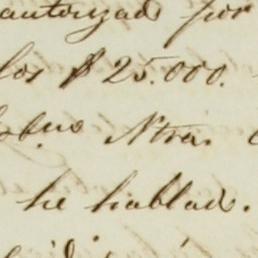 autorizado por
los $25.000.
Ntra.
he hablado.